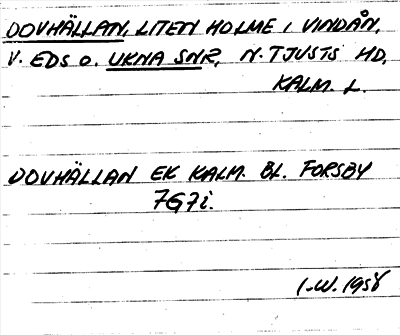 DOVHÄLLAN, LITEN HOLME I VINDÅN,
V. EDS O. UKNA SNR, N. TJUSTS HD,
KALM. L.
DOVHÄLLAN EK KALM. BL. FORSBY
7G7i.
I.W. 1958